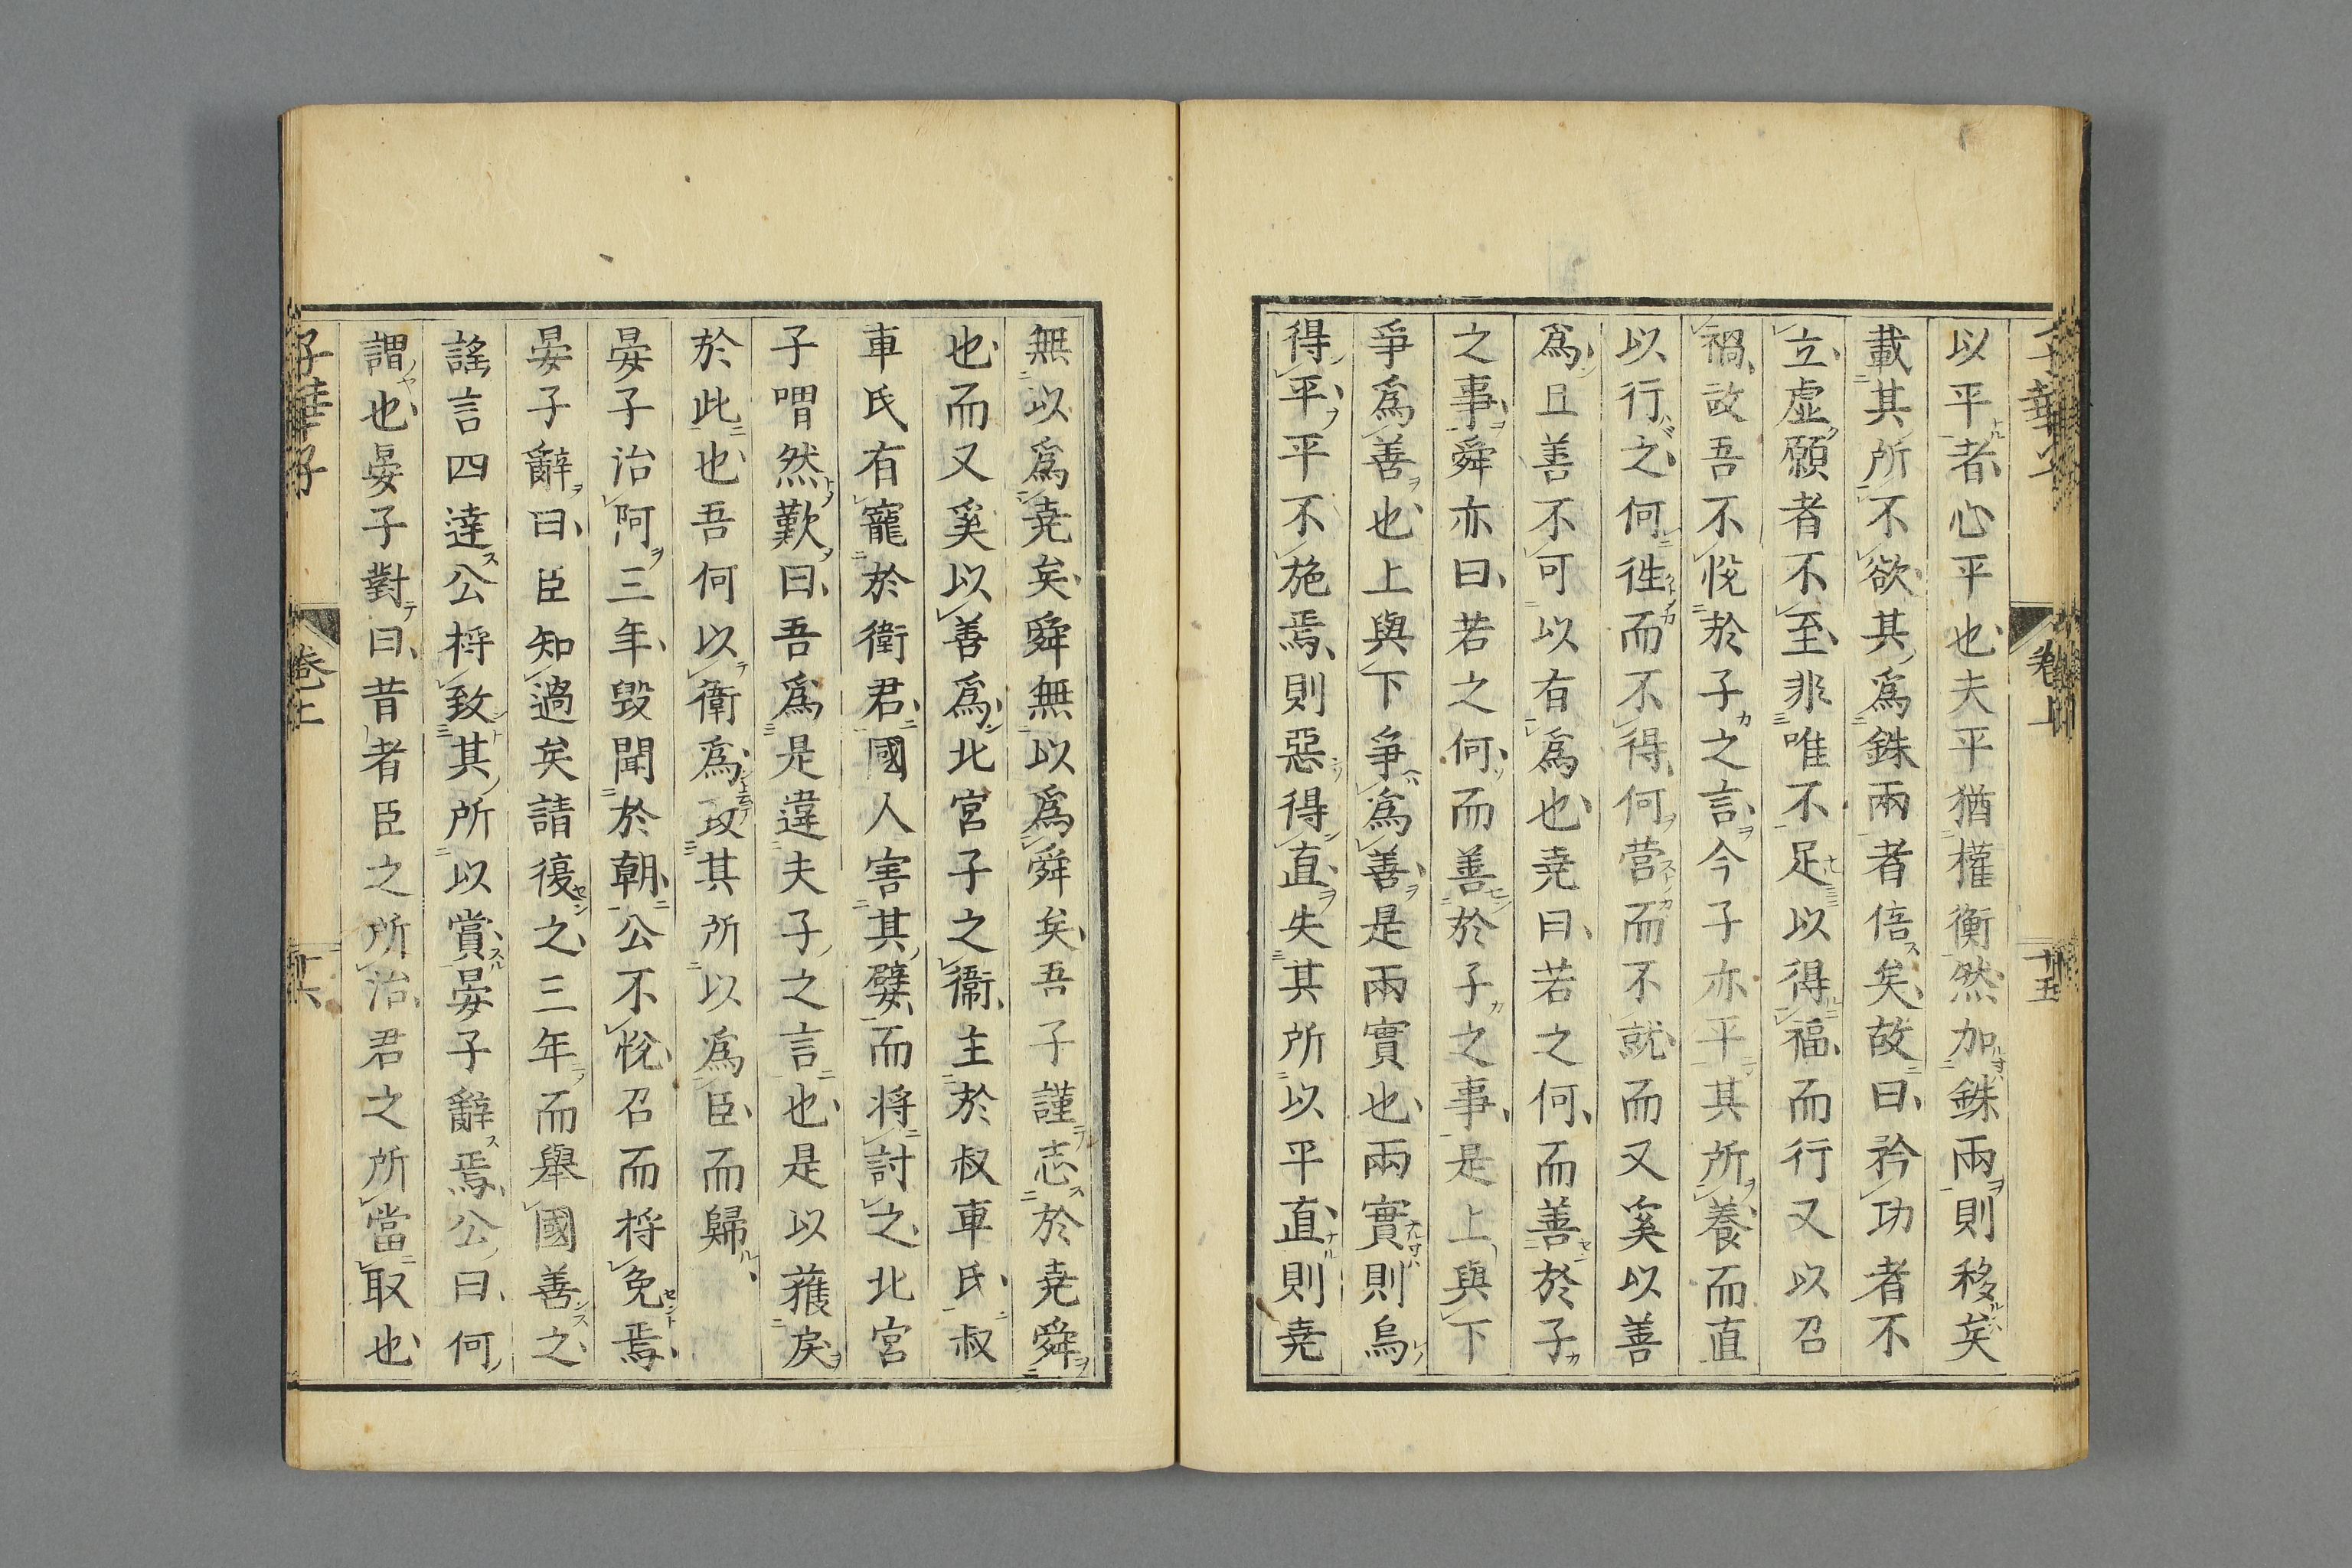 以平者心平也夫平猶權衡然加銖兩則移矣
載其所不欲其爲銖兩者倍矣故曰矜功者不
立虛願者不至非唯不足以得福而行又以召
禍故吾不悅於子之言今子亦平其所養而直
以行之何徃而不得何营而不就而又奚以善
爲且善不可以有爲也堯曰若之何而善於子
之事舜亦曰若之何而善於子之事是上與下
爭爲善也上與下爭爲善是兩實也兩實則烏
得平平不施焉則惡得直失其所以平直則堯
無以爲堯矣舜無以爲舜矣吾子謹志於堯舜
也而又奚以善爲北宮子之衞主於叔車氏叔
車氏有寵於衛君國人害其嬖而将討之北宮
子喟然歎曰吾爲是違夫子之言也是以獲戾
於此也吾何以衛爲政其所以爲臣而歸
晏子治阿三年毀聞於朝公不悅召而将免焉
晏子辭曰臣知過矣請復之三年而舉國善之
謠言四達公将致其所以賞晏子辭焉公曰何
謂也晏子對曰昔者臣之所治君之所當取也
子華子
卷上
十六
卷上
十五